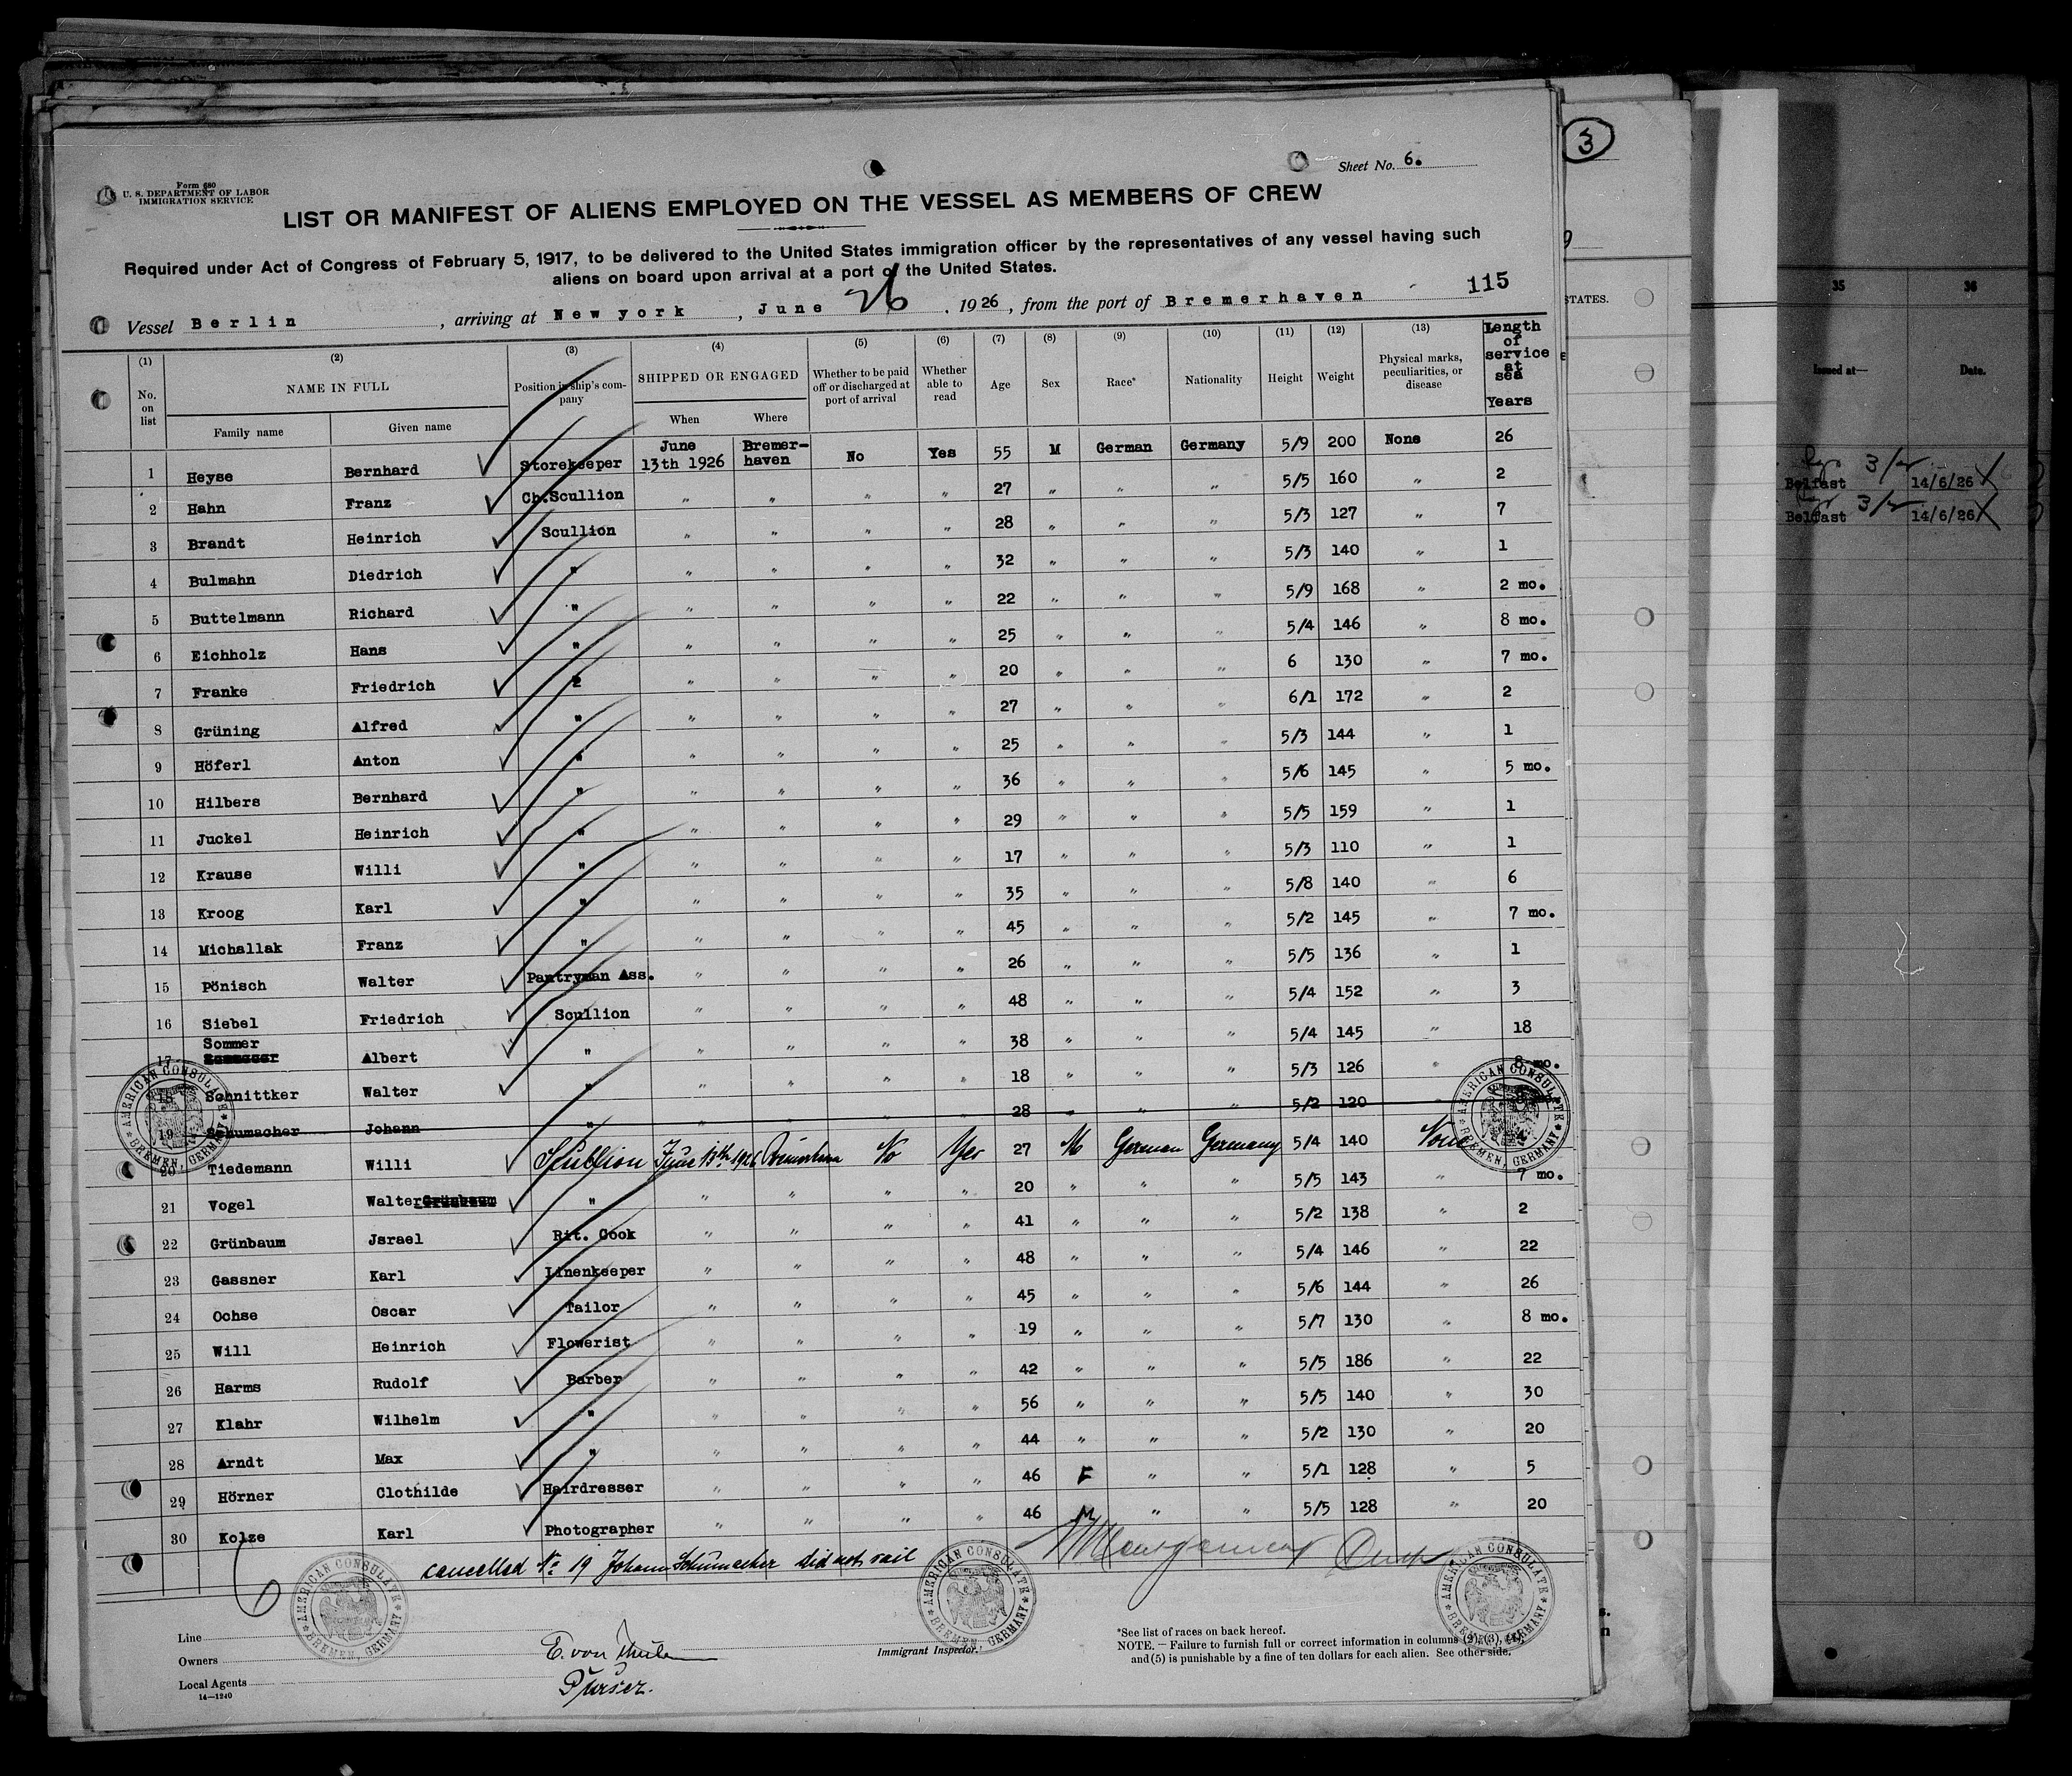 Form 680
U. S. DEPARTMENT OF LABOR
IMMIGRATION SERVICE
Sheet No. 6.
3
LIST OR MANIFEST OF ALIENS EMPLOYED ON THE VESSEL AS MEMBERS OF CREW
Required under Act of Congress of February 5, 1917, to be delivered to the United States immigration officer by the representatives of any vessel having such
aliens on board upon arrival at a port of the United States.
115
Vessel Berlin, arriving at New york, June 26, 1926, from the port of Bremerhaven
STATES.
35 36
Issued at— Date.
(1) (2) (3) (4) (5) (6) (7) (8) (9) (10) (11) (12) (13)
No. on list NAME IN FULL Family name Given name Position in ship's company SHIPPED OR ENGAGED When Where Whether to be paid off or discharged at port of arrival Whether able to read Age Sex Race* Nationality Height Weight Physical marks, peculiarities, or disease Length of service at sea Years
1 Heyse Bernhard Storekeeper June 13th 1926 Bremer-haven No Yes 55 M German Germany 5/9 200 None 26
2 Hahn Franz Ch.Scullion " " " " 27 " " " 5/5 160 " 2
3 Brandt Heinrich Scullion " " " " 28 " " " 5/3 127 " 7
4 Bulmahn Diedrich " " " " " 32 " " " 5/3 140 " 1
5 Buttelmann Richard " " " " " 22 " " " 5/9 168 " 2 mo.
6 Eichholz Hans " " " " " 25 " " " 5/4 146 " 8 mo.
7 Franke Friedrich 2 " " " " 20 " " " 6 130 " 7 mo.
8 Grüning Alfred " " " " " 27 " " " 6/1 172 " 2
9 Höferl Anton " " " " " 25 " " " 5/3 144 " 1
10 Hilbers Bernhard " " " " " 36 " " " 5/6 145 " 5 mo.
11 Juckel Heinrich " " " " " 29 " " " 5/5 159 " 1
12 Krause Willi " " " " " 17 " " " 5/3 110 " 1
13 Kroog Karl " " " " " 35 " " " 5/8 140 " 6
14 Michallak Franz " " " " " 45 " " " 5/2 145 " 7 mo.
15 Pönisch Walter Pantryman Ass. " " " " 26 " " " 5/5 136 " 1
16 Siebel Friedrich Scullion " " " " 48 " " " 5/4 152 " 3
17 Sommer Albert " " " " " 38 " " " 5/4 145 " 18
18 Schnittker Walter " " " " " 18 " " " 5/3 126 " 8 mo.
19 Schumacher Johann " " " " " 28 " " " 5/2 120
20 Tiedemann Willi Scullion June 13th 1926 Bremerhaven No Yes 27 M German Germany 5/4 140 None
21 Vogel Walter Grünbaum " " " " " 20 " " " 5/5 143 " 7 mo.
22 Grünbaum Jsrael Rit. Cook " " " " 41 " " " 5/2 138 " 2
23 Gassner Karl Linenkeeper " " " " 48 " " " 5/4 146 " 22
24 Ochse Oscar Tailor " " " " 45 " " " 5/6 144 " 26
25 Will Heinrich Flowerist " " " " 19 " " " 5/7 130 " 8 mo.
26 Harms Rudolf Barber " " " " 42 " " " 5/5 186 " 22
27 Klahr Wilhelm " " " " " 56 " " " 5/5 140 " 30
28 Arndt Max " " " " " 44 " " " 5/2 130 " 20
29 Hörner Clothilde Hairdresser " " " " 46 F " " 5/1 128 " 5
30 Kolze Karl Photographer " " " " 46 M " " 5/5 128 " 20
cancelled No 19 Johann Schumacher did not sail
3/
Belfast 14/6/26
3/
Belfast 14/6/26
AMERICAN CONSULATE BREMEN, GERMANY
AMERICAN CONSULATE BREMEN, GERMANY
AMERICAN CONSULATE BREMEN, GERMANY
AMERICAN CONSULATE BREMEN, GERMANY
AMERICAN CONSULATE BREMEN, GERMANY
Line
Owners
Local Agents
14—1240
E. von
Purser.
Immigrant Inspector.
*See list of races on back hereof.
NOTE.—Failure to furnish full or correct information in columns (2), (3), (4),
and (5) is punishable by a fine of ten dollars for each alien. See other side.